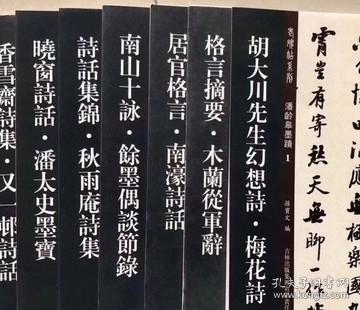 胡大川先生幻想詩·梅花詩
老糖帖系列
潘齡皋墨蹟
1
孫寶文 編
吉林出版集團
責任
霄豈有寄愁天無聊一作
格言摘要·木蘭從軍辭
居官格言·南濠詩話
南山十詠·餘墨偶談節錄
詩話集錦·秋雨庵詩集
曉窗詩話·潘太史墨寶
香雪齋詩集·又一邨詩話